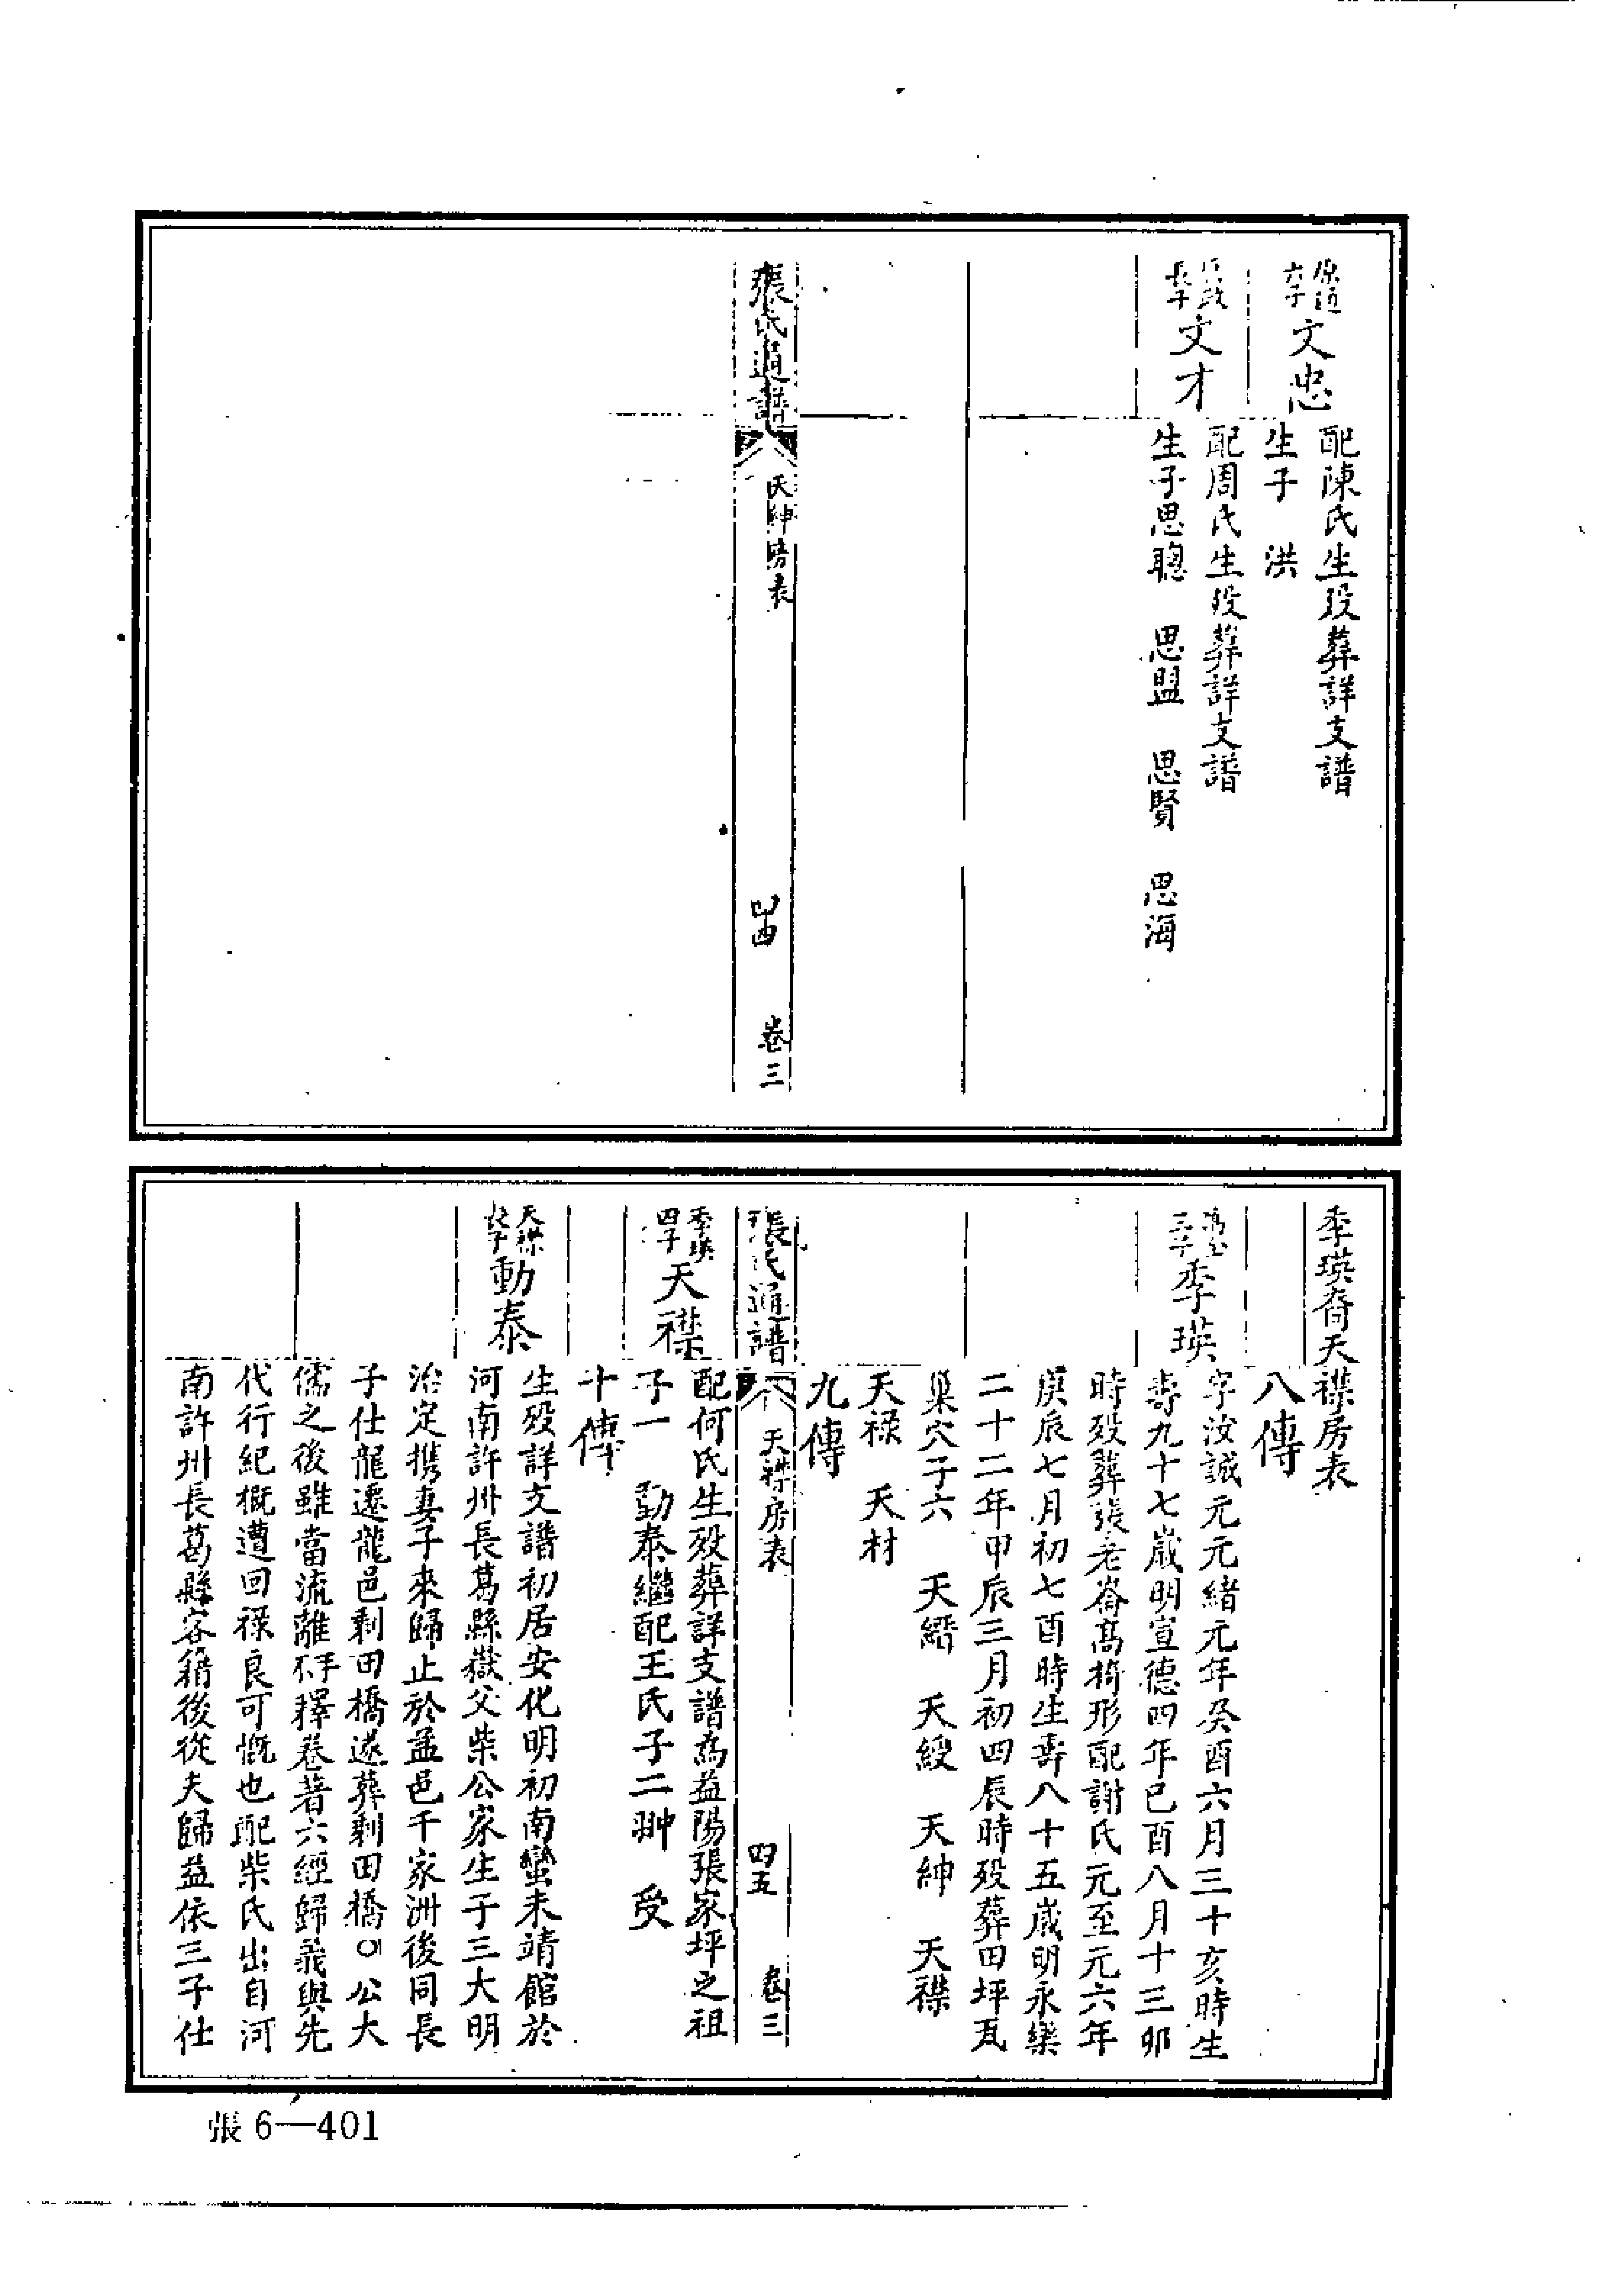 六子
文忠
配陳氏生歿葬詳支譜
生子　洪
長子
文才
配周氏生歿葬詳支譜
生子思聰　思盟　思賢　思海
張氏通譜　天紳房表　卷三
季瑛裔天襟房表
八傳
三子
季瑛
字汝誠元元緒元年癸酉六月三十亥時生
壽九十七歲明宣德四年己酉八月十三卯
時歿葬張老崙髙椅形配謝氏元至元六年
庚辰七月初七酉時生壽八十五歲明永樂
二十二年甲辰三月初四辰時歿葬田坪瓦
巢穴子六　天縉　天綬　天紳　天襟
天祿　天材
九傳
張氏通譜　天襟房表　四五　卷三
季瑛
四子
天襟
配何氏生歿葬詳支譜為益陽張家坪之祖
子一　動泰繼配王氏子二翀　受
十傳
天襟
長子
動泰
生歿詳支譜初居安化明初南蠻未靖館於
河南許州長葛縣嶽父柴公家生子三大明
治定携妻子來歸止於益邑千家洲後同長
子仕龍遷龍邑剩田橋遂葬剩田橋〇公大
儒之後雖當流離手不釋卷著六經歸義與先
代行紀概遭回祿良可慨也配柴氏出自河
南許州長葛縣客籍後從夫歸益依三子仕
張 6—401